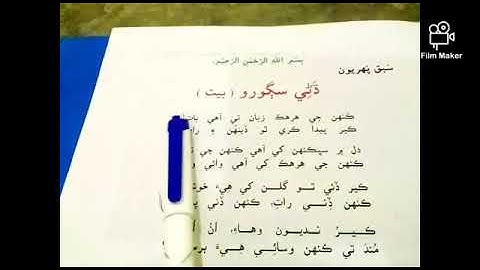 بِسْمِ اللهِ الرَّحْمٰنِ الرَّحِيْمِ.
سَبق پَهريون
ڌَڻِي سڳورو ( بيت )
ڪنهن جي هرهڪ زبان تي آهي
ڪير پيدا ڪري ٿو ڏينهن ۽
دل ۾ سڀڪنهن کي آهي ڪنهن جي
ڪنهن جي هرهڪ کي آهي وائي
ڪير ڏئي ٿو گلن کي هيءَ
ڪنهن ڏِني رات، ڪنهن ڏني
ڪير نديون وهاءِ، اُنَ
مُندَ تي ڪنهن وسائِي هيءَ
Film Maker